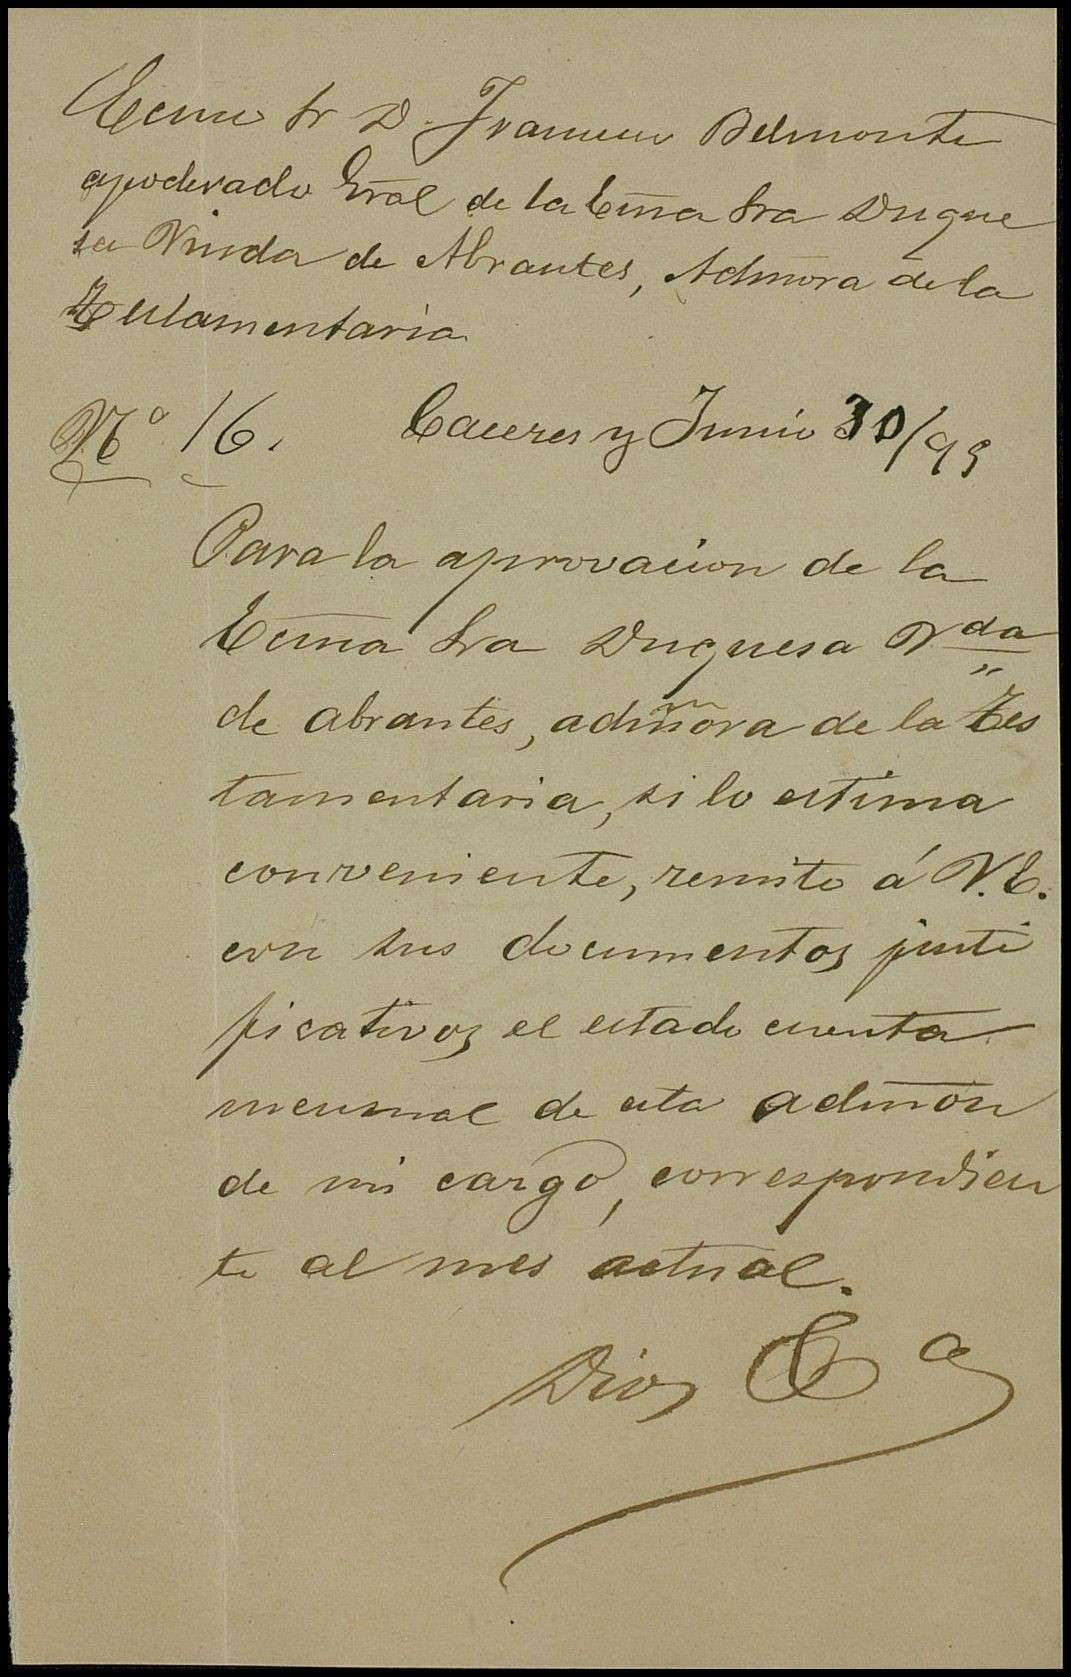 Ecmo Sr D. Francisco Belmonte
apoderado Gral de la Ecma Sra Duque
sa Viuda de Abrantes, Admora de la
Testamentaria
Nº 16. Caceres y Junio 30/93
Para la aprovacion de la
Ecma Sra Duquesa Vda
de abrantes, admora de la Tes
tamentaria, si lo estima
conveniente, remito á V.E.
con sus documentos justi
ficativos el estado cuenta
mensual de esta admon
de mi cargo, correspondien
te al mes actual.
Dios &a